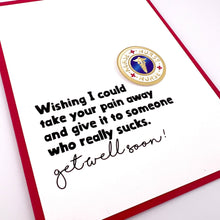 Wishing I could
take your pain away
and give it to someone
who really sucks.
get well soon!